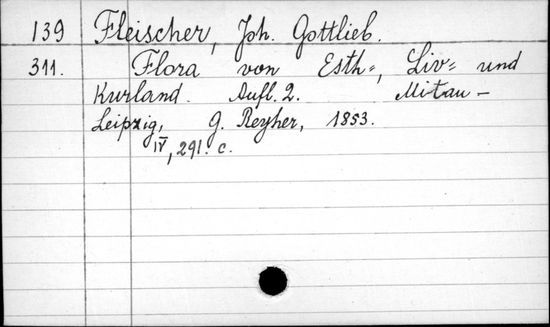 139 Fleischer, Joh. Gottlieb.
311. Flora von Esth=, Liv= und
Kurland. Aufl. 2. Mitau -
Leipzig, G. Reyher, 1853.
IV, 291. c.